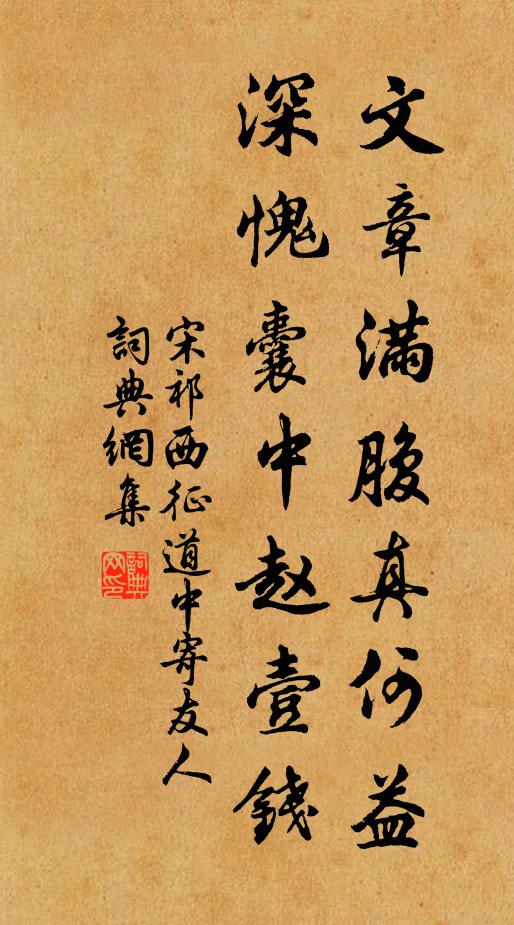 文章满腹真何益
深愧囊中赵壹錢
宋祁西征道中寄友人
詞典網集
詞典网印